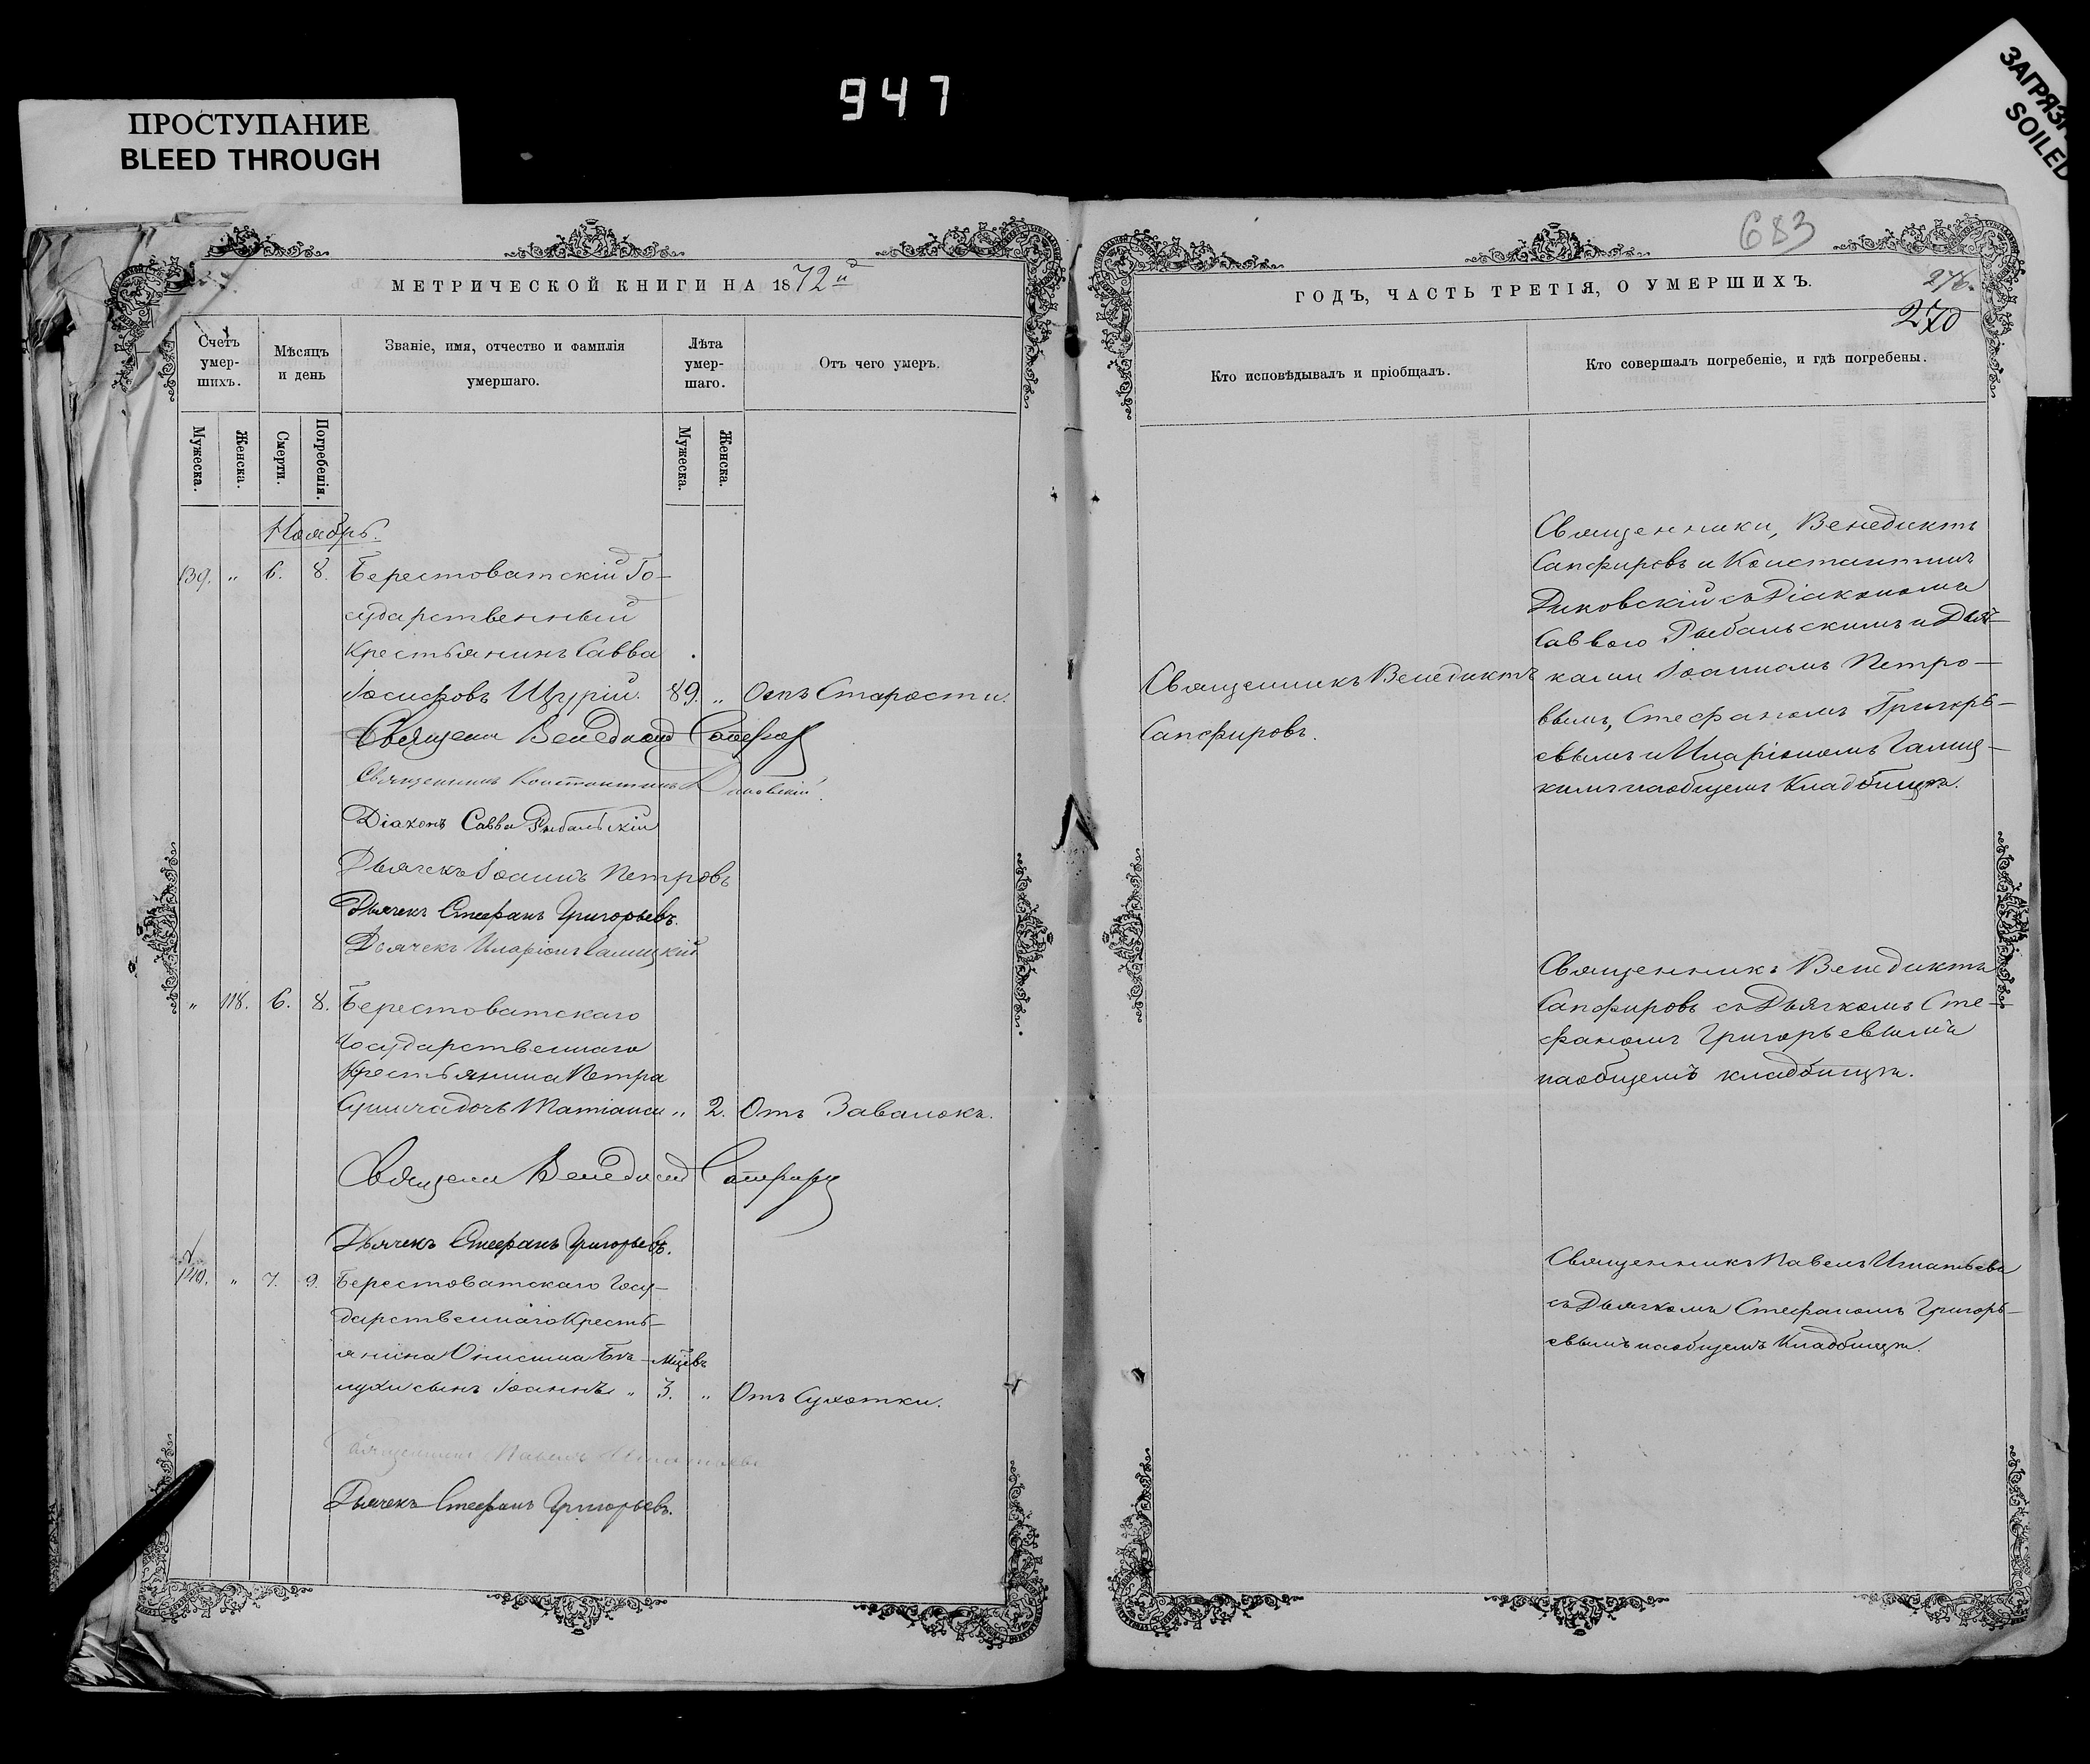 947
ПРОСТУПАНИЕ
BLEED THROUGH
SOILED
683
МЕТРИЧЕСКОЙ КНИГИ НА 1872й
ГОДЪ, ЧАСТЬ ТРЕТІЯ, О УМЕРШИХЪ.
276.
270
Счетъ умер-шихъ.
Мѣсяцъ и день
Званіе, имя, отчество и фамилія умершаго.
Лѣта умер-шаго.
Отъ чего умеръ.
Кто исповѣдывалъ и пріобщалъ.
Кто совершалъ погребеніе, и гдѣ погребены.
Мужеска.
Женска.
Смерти.
Погребенія.
Мужеска.
Женска.
Ноябрь.
139. " 6. 8. Берестоватскій Го-
сударственный
Крестьянинъ Савва
Іосифовъ 89. " Отъ Старости.
Священникъ Венедиктъ
Сапфировъ.
Священники, Венедиктъ
Сапфировъ и Константинъ
Диковскій съ Діакономъ
Саввою Рыбальскимъ и Дьяч-
ками Іоанномъ Петро-
вымъ, Стефаномъ Григорь-
евымъ и Иларіономъ Галиц-
кимъ на общемъ Кладбищѣ.
Священ Венедикт Сапфиров
Священникъ Константинъ Диковскій.
Діаконъ Савва Рыбальскій
Дьячекъ Іоаннъ Петровъ
Дьячекъ Стефанъ Григорьевъ.
Дьячекъ Иларіонъ Галицкій
" 118. 6. 8. Берестоватскаго
Государственнаго
Крестьянина Петра
дочь Татіана " 2. Отъ Завалокъ.
Священникъ Венедиктъ
Сапфировъ съ Дьячкомъ Сте-
фаномъ Григорьевымъ
на общемъ кладбищѣ.
Священ Венедикт Сапфиров
Дьячекъ Стефанъ Григорьевъ.
140. " 7. 9. Берестоватскаго Госу-
дарственнаго Кресть-
янина Онисима
сынъ Іоаннъ " 3. Мцевъ " Отъ Сухотки.
Священникъ Павелъ Игнатьевъ
съ Дьячкомъ Стефаномъ Григорь-
евымъ на общемъ Кладбищѣ.
Священникъ Павелъ Игнатьевъ
Дьячекъ Стефанъ Григорьевъ.